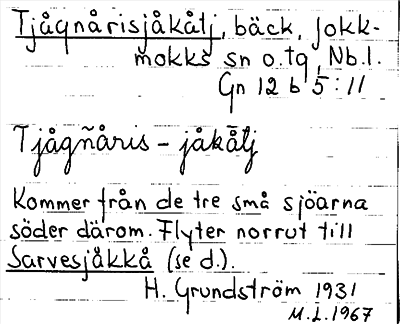 Tjågnårisjåkåtj, bäck, Jokk-
mokks sn o. tg, Nb. l.
Gn 12 b 5:11
Tjågñåris - jåkåtj
Kommer från de tre små sjöarna
söder därom. Flyter norrut till
Sarvesjåkkå (se d.).
H. Grundström 1931
M.L. 1967